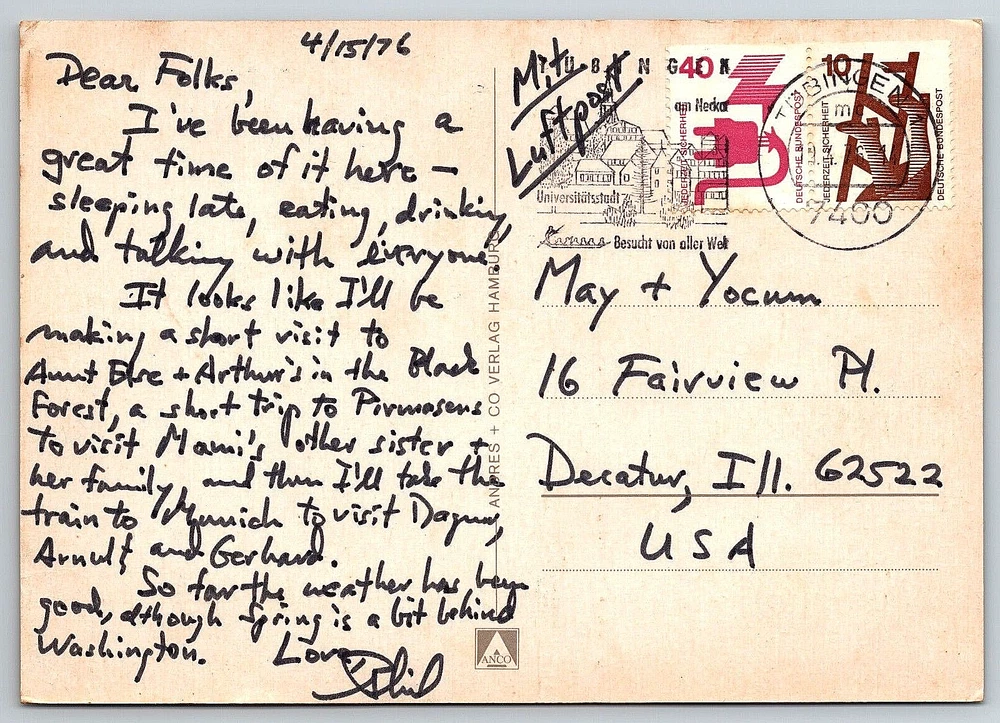 4/15/76
Dear Folks,
I've been having a
great time of it here –
sleeping late, eating, drinking,
and talking with everyone.
It looks like I'll be
making a short visit to
Aunt Else + Arthur's in the Black
Forest, a short trip to Pirmasens
to visit Mami's other sister +
her family, and then I'll take the
train to Munich to visit Dagmar,
Arnulf and Gerhard.
So far the weather has been
good, although Spring is a bit behind
Washington. Love
Phil
ANDRES + CO VERLAG HAMBURG
ANCO
Mit
Luftpost
TÜBINGEN
am Neckar
Universitätsstadt
Besucht von aller Welt
40
JEDERZEIT SICHERHEIT
DEUTSCHE BUNDESPOST
10
JEDERZEIT SICHERHEIT
DEUTSCHE BUNDESPOST
TÜBINGEN
m
7400
May + Yocum
16 Fairview Pl.
Decatur, Ill. 62522
USA